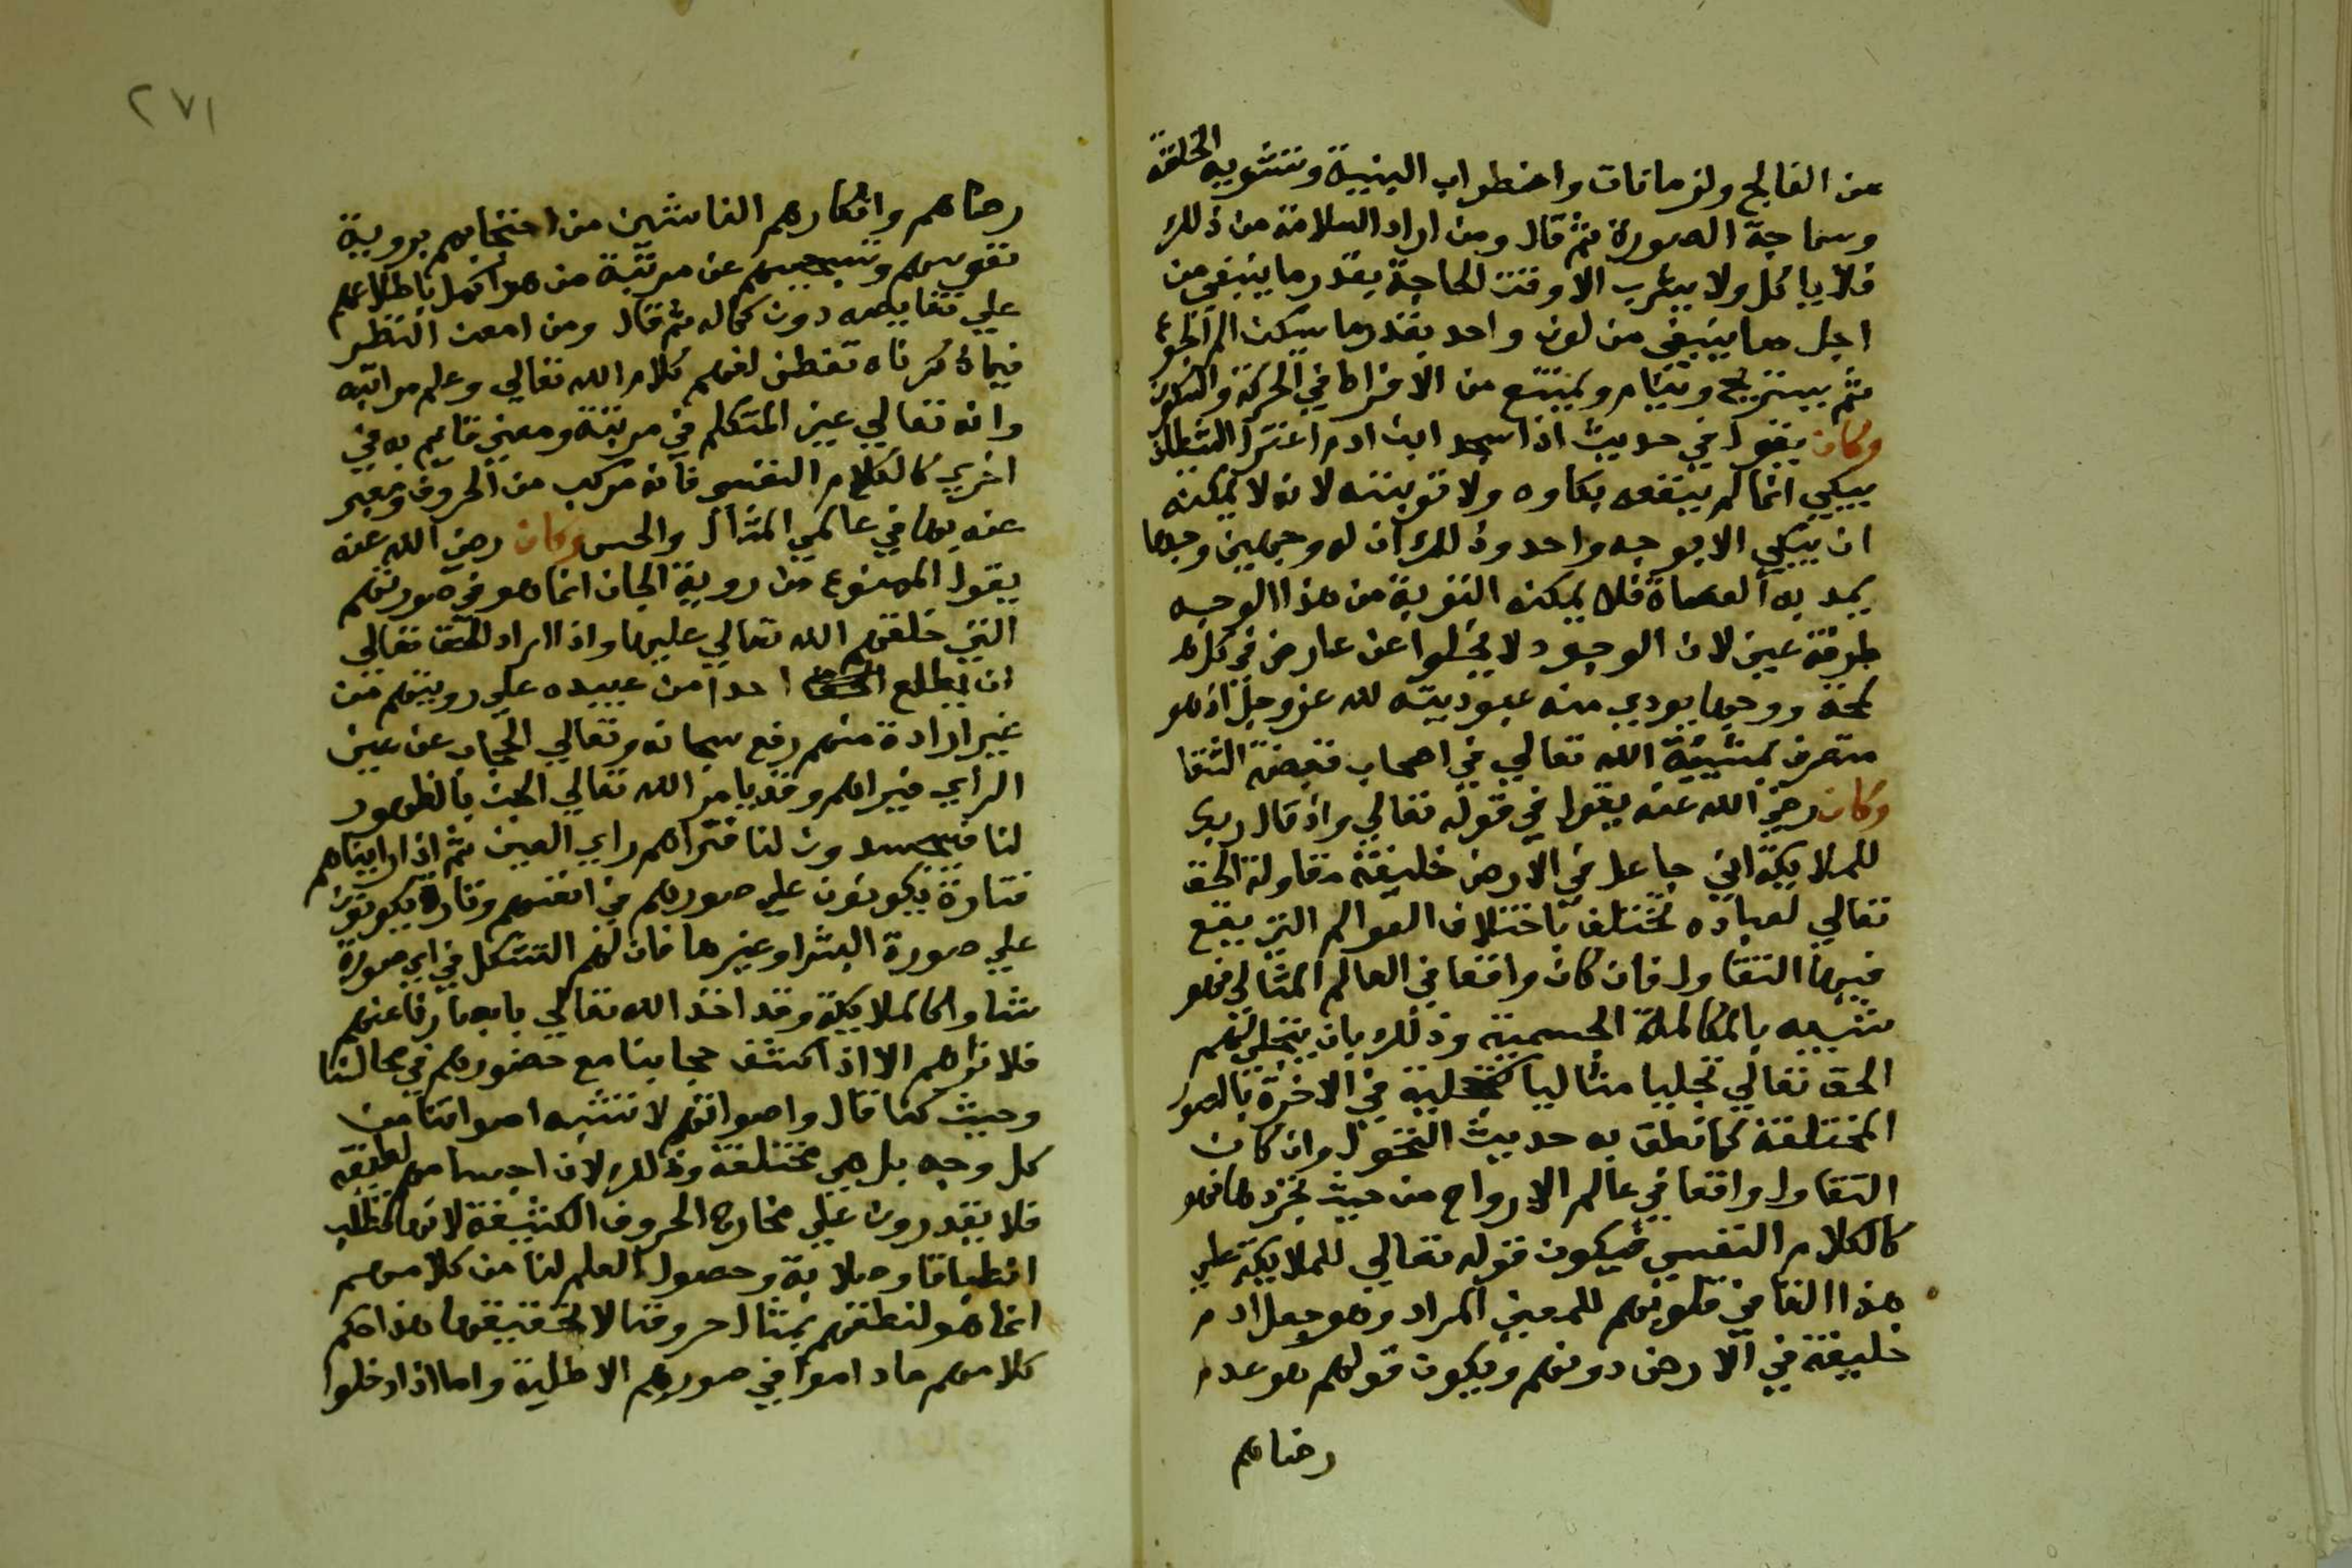 عن الفالج ولزمانات واضطراب البنية وتشويه الخلقة
وسماجة الصورة ثم قال ومن اراد السلامة من ذلك
فلا ياكل ولا يشرب الا وقت الحاجة بقدر ما ينبغي من
اجل ما ينبغي من لون واحد بقدر ما يسكن الم الجوع
ثم يستريح وينام ويمتنع من الافراط في الحركة والسكون
وكان يقول في حديث اذا سجد ابن ادم اعتزل الشيطان
يبكي انما لم ينفعه بكاوه ولا توبته لانه لا يمكنه
ان يبكي الا بوجه واحد وذلك ان له وجهين وجها
يمد به العصاة فلا يمكنه التوبة من هذا الوجه
طرفة عين لان الوجود لا يخلوا عن عارض في كل
لمحة ووجها يودي منه عبوديته لله عز وجل اذ هو
متصرف بمشيية الله تعالي في اصحاب قبضة الشقا
وكان رضي الله عنه يقول في قوله تعالي واذ قال ربك
للملايكة اني جاعل في الارض خليفة مقاولة الحق
تعالي لعباده تختلف باختلاف العوالم التي يقع
فيها التقاول فان كان واقعا في العالم المثالي فهو
شبيه بالمكالمة الجسمية وذلك بان يتجلي لهم
الحق تعالي تجليا مثاليا كتجليه في الاخرة بالصور
المختلفة كما نطق به حديث التحول وان كان
التقاول واقعا في عالم الارواح من حيث تجردها فهو
كالكلام النفسي فيكون قوله تعالي للملايكة علي
هذا القا في قلوبهم للمعني المراد وهو جعل ادم
خليفة في الارض دونهم ويكون قولهم هو عدم
رضاهم
٢٧١
رضاهم وانكارهم الناشين من احتجابهم بروية
نفوسهم وتسبيحهم عن مرتبة من هو اكمل باطلاعهم
علي نقايصه دون كماله ثم قال ومن امعن النظر
فيما ذكرناه تفطن لفهم كلام الله تعالي وعلم مراتبه
وانه تعالي عين المتكلم في مرتبة ومعني قايم به في
اخري كالكلام النفسي فانه مركب من الحروف ومعبر
عنه بها في عالمي المثال والحس وكان رضي الله عنه
يقول الممنوع من روية الجان انما هو في صورتهم
التي خلقهم الله تعالي عليها واذا اراد الحق تعالي
ان يطلع احدا من عبيده علي رويتهم من
غير ارادة منهم رفع سبحانه وتعالي الحجاب عن عين
الراي فيراهم وقد يامر الله تعالي الجن بالظهور
لنا فيتجسدون لنا فنراهم راي العين ثم اذا رايناهم
فتارة يكونون علي صورهم في انفسهم وتارة يكونون
علي صورة البشر او غيرها فان لهم التشكل في اي صورة
شاوا كالملايكة وقد اخذ الله تعالي بابصارنا عنهم
فلا نراهم الا اذا كشف حجابنا مع حضورهم في مجالسنا
وحيث كنا قال واصواتهم لا تشبه اصواتنا من
كل وجه بل هي مختلفة وذلك لان اجسامهم لطيفة
فلا يقدرون علي مخارج الحروف الكثيفة لانها تطلب
انطباقا وصلابة وحصول العلم لنا من كلامهم
انما هو لنطقهم بمثال حروفنا لا بحقيقتها هذا حكم
كلامهم ما داموا في صورهم الاصلية واما اذا دخلوا